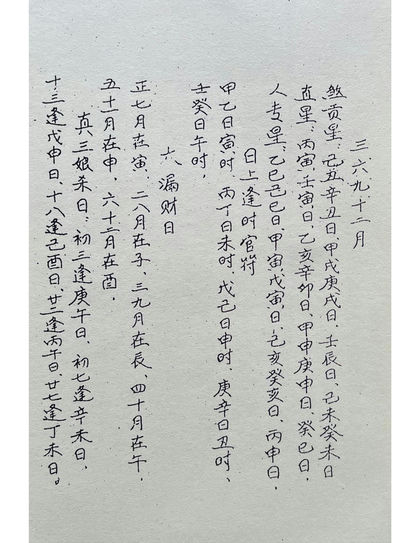 三六九十二月
煞贡星:己丑辛丑日甲戌庚戌日、壬辰日、己未癸未日
直星:丙寅、壬寅日、乙亥辛卯日、甲申庚申日、癸巳日,
人专星:乙巳己巳日、甲寅戊寅日、己亥癸亥日、丙申日,
日上逢时官符
甲乙日寅时、丙丁日未时、戊己日申时、庚辛日丑时,
壬癸日午时,
六漏财日
正七月在寅、二八月在子、三九月在辰、四十月在午,
五十一月在申,六十二月在酉,
真三娘杀日:初三逢庚午日,初七逢辛未日,
十三逢戊申日、十八逢己酉日、廿二逢丙午日廿七逢丁未日。